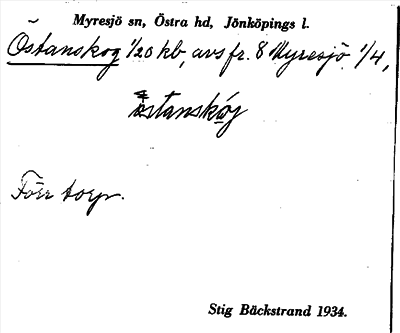 Myresjö sn, Östra hd, Jönköpings l.
Östanskog 1/20 kb, avs fr. 8 Myresjö 1/4,
östanskóg
Förr torp.
Stig Bäckstrand 1934.